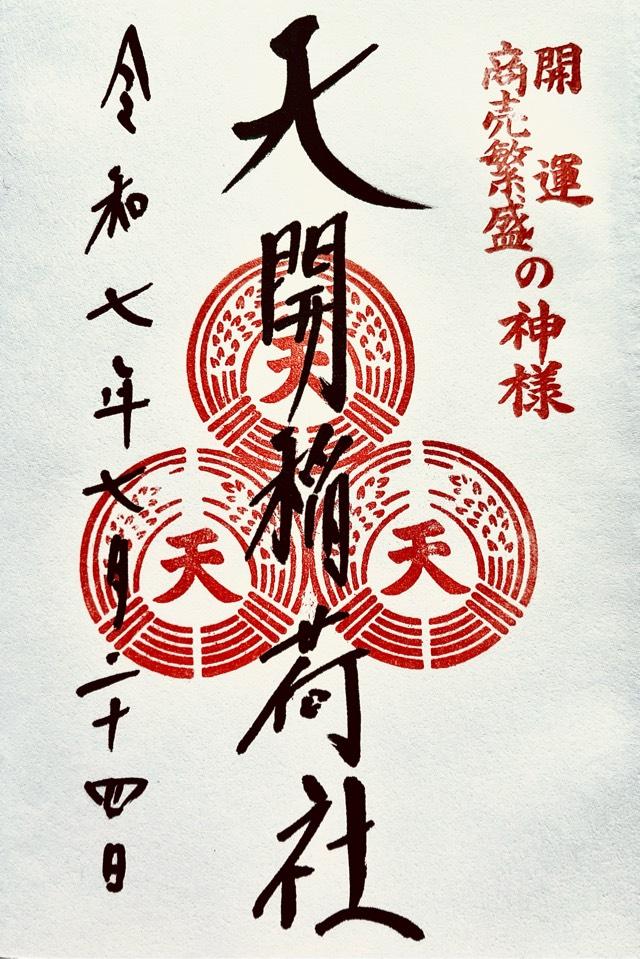 開運
商売繁盛
の神様
天開稲荷社
天
天
天
令和七年七月二十四日